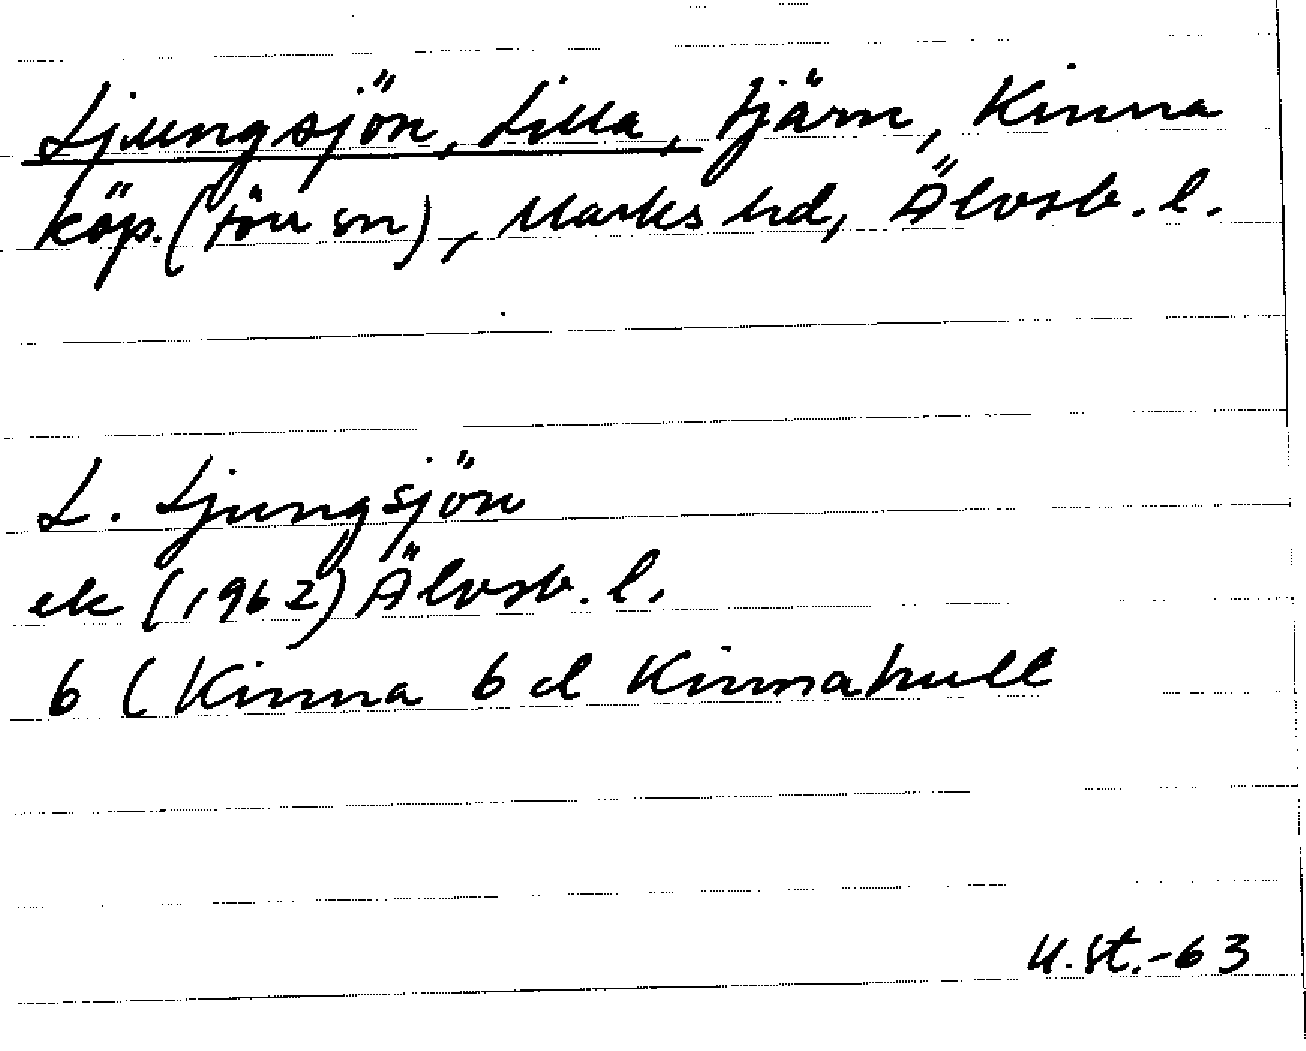 Ljungsjön, Lilla, tjärn, Kinna
köp. (förr sn), Marks hd, Älvsb. l.
L. Ljungsjön
ek (1962) Älvsb. l.
6 (Kinna 6 d Kinnahult
U.St.-63